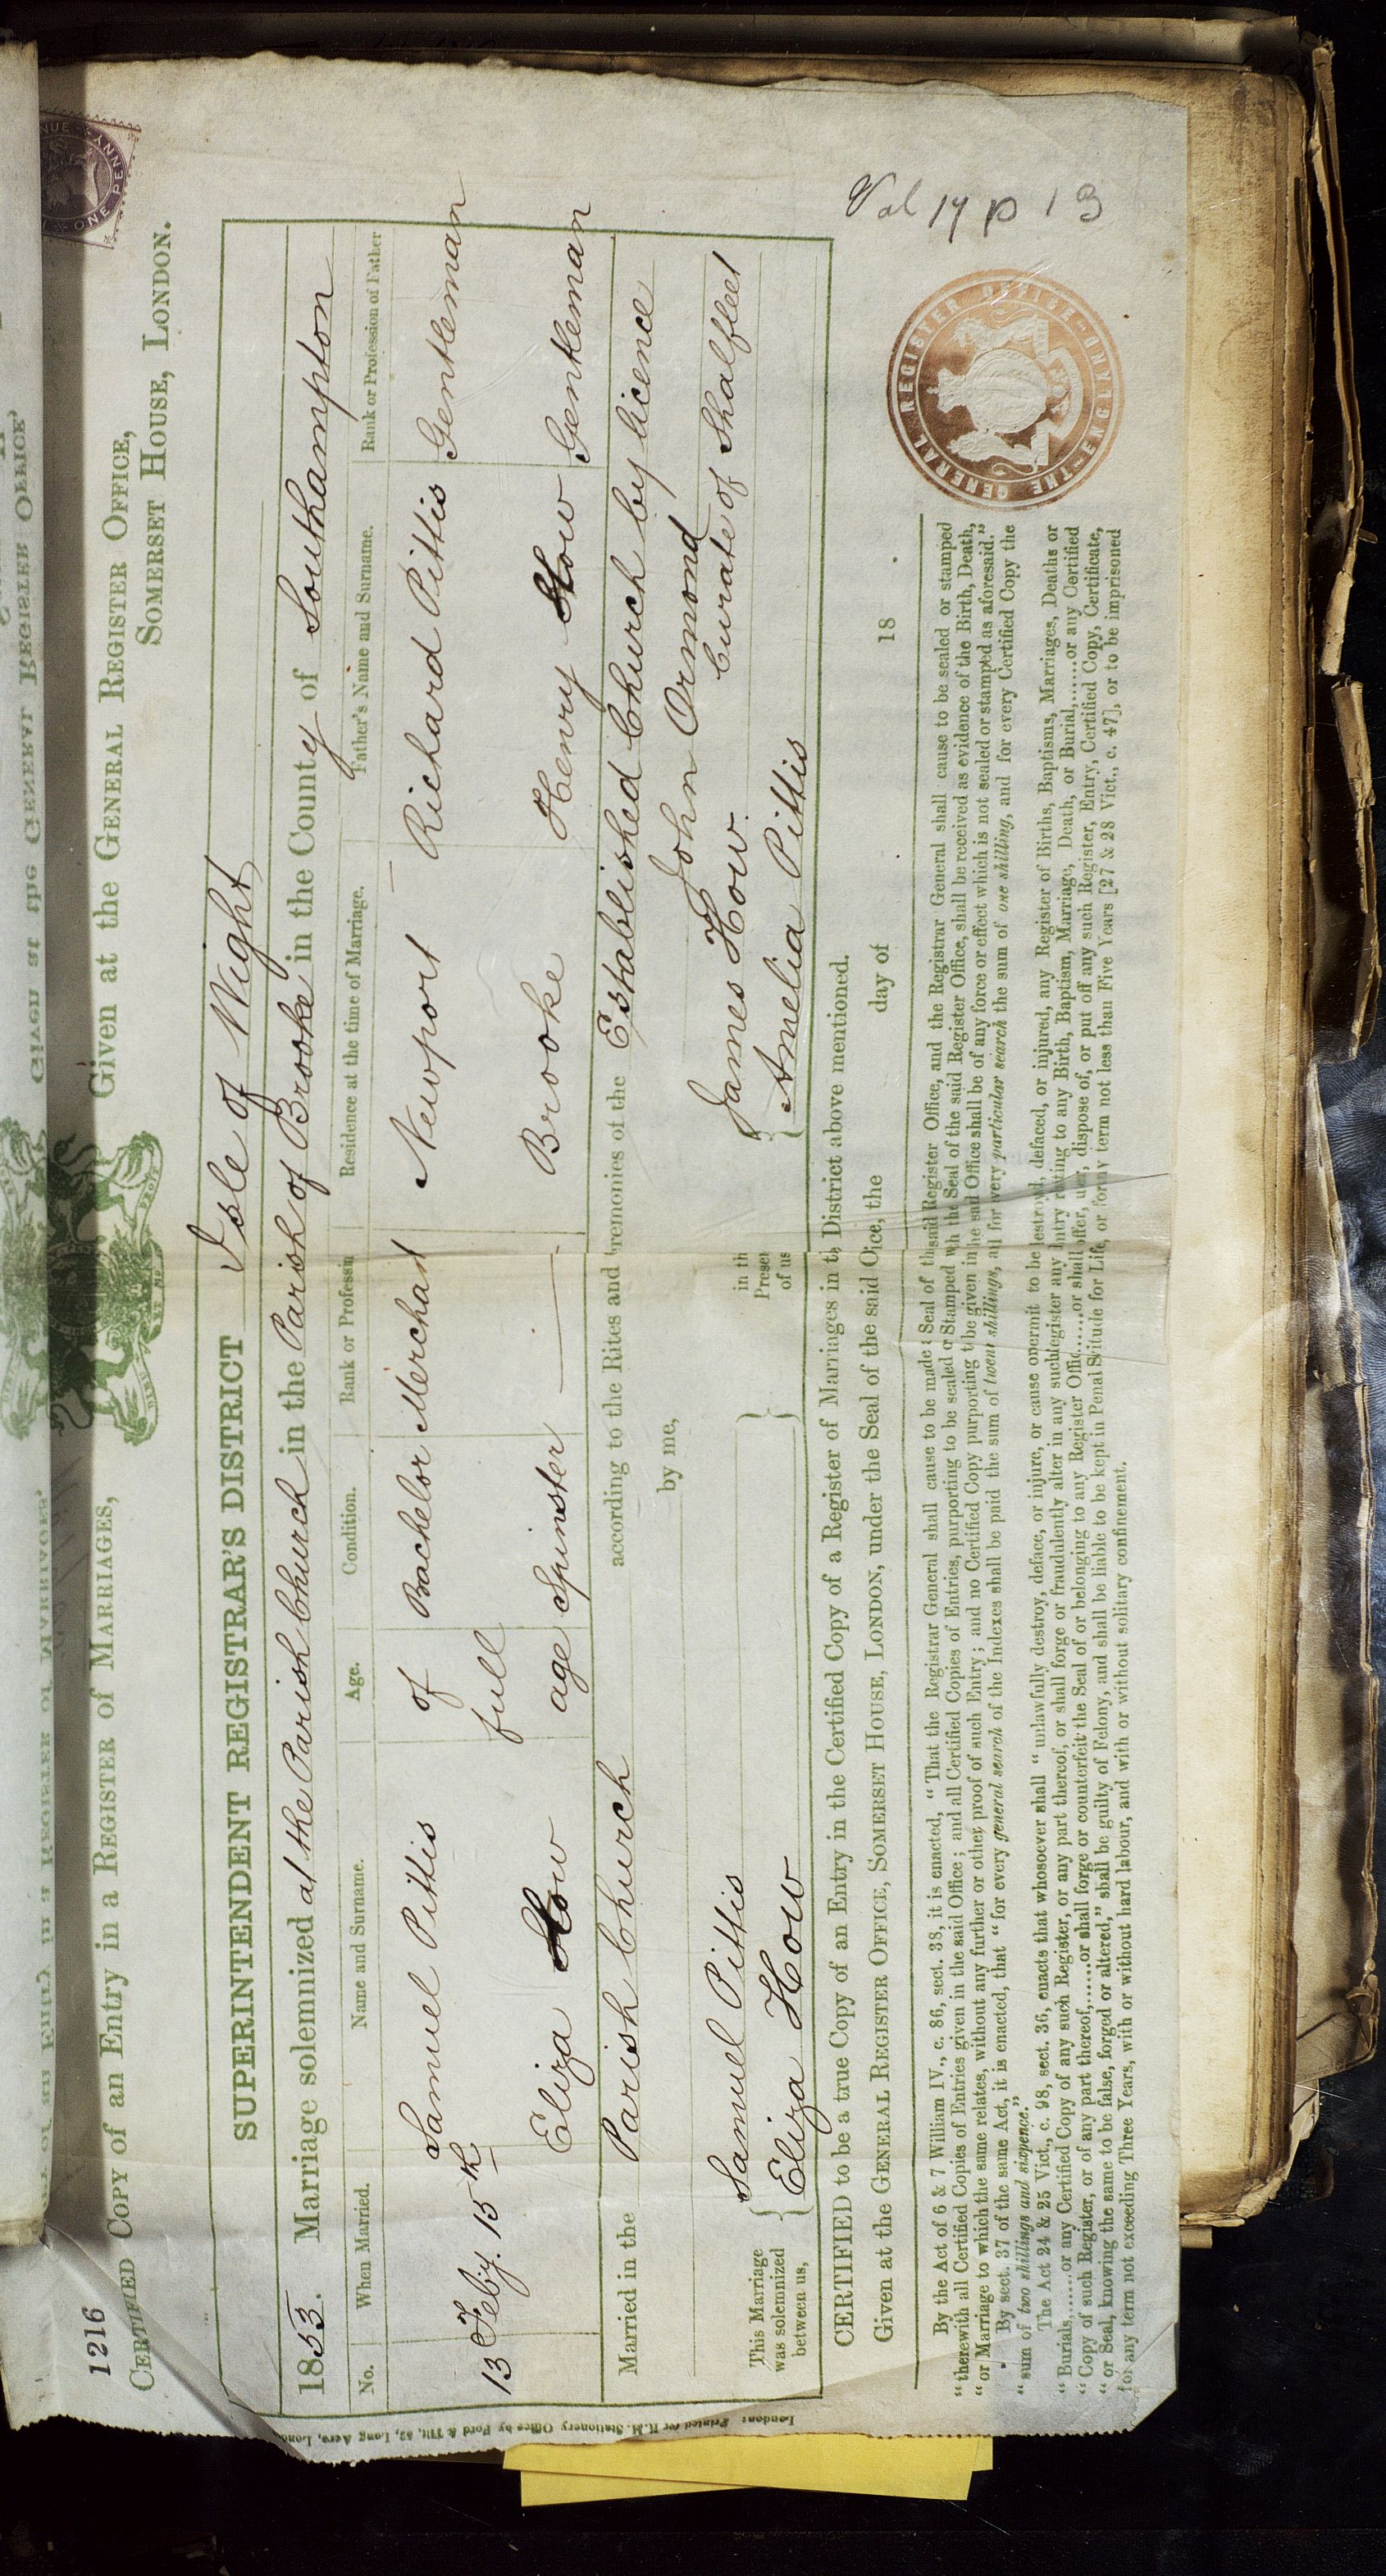 1216
CERTIFIED COPY of an Entry in a REGISTER OF MARRIAGES,
Given at the GENERAL REGISTER OFFICE,
SOMERSET HOUSE, LONDON.
ONE PENNY
SUPERINTENDENT REGISTRAR'S DISTRICT Isle of Wight
1853. Marriage solemnized at the Parish Church in the Parish of Brooke in the County of Southampton
No. When Married. Name and Surname. Age. Condition. Rank or Profession Residence at the time of Marriage. Father's Name and Surname. Rank or Profession of Father
13 Feby. 15th Samuel Pittis of full age Bachelor Merchant Newport Richard Pittis Gentleman
Eliza How Spinster — Brooke Henry How Gentleman
Married in the Parish Church according to the Rites and Ceremonies of the Established Church by licence
by me, John Ormond
Curate of Shalfleet
This Marriage was solemnized between us, { Samuel Pittis } in the Presence of us { James How
Eliza How Amelia Pittis
CERTIFIED to be a true Copy of an Entry in the Certified Copy of a Register of Marriages in the District above mentioned.
Given at the GENERAL REGISTER OFFICE, SOMERSET HOUSE, LONDON, under the Seal of the said Office, the day of 18 .
By the Act of 6 & 7 William IV., c. 86, sect. 38, it is enacted, "That the Registrar General shall cause to be made a Seal of the said Register Office, and the Registrar General shall cause to be sealed or stamped
"therewith all Certified Copies of Entries given in the said Office; and all Certified Copies of Entries, purporting to be sealed or Stamped with the Seal of the said Register Office, shall be received as evidence of the Birth, Death,
"or Marriage to which the same relates, without any further or other proof of such Entry; and no Certified Copy purporting to be given in the said Office shall be of any force or effect which is not sealed or stamped as aforesaid."
By sect. 37 of the same Act, it is enacted, that "for every general search of the Indexes shall be paid the sum of twenty shillings, and for every particular search the sum of one shilling, and for every Certified Copy the
"sum of two shillings and sixpence."
The Act 24 & 25 Vict., c. 98, sect. 36, enacts that whosoever shall "unlawfully destroy, deface, or injure, or cause or permit to be destroyed, defaced, or injured, any Register of Births, Baptisms, Marriages, Deaths or
"Burials,......or any Certified Copy of any such Register, or any part thereof, or shall forge or fraudulently alter in any such Register any Entry relating to any Birth, Baptism, Marriage, Death, or Burial,......or any Certified
"Copy of such Register, or of any part thereof,......or shall forge or counterfeit the Seal of or belonging to any Register Office......or shall offer, utter, dispose of, or put off any such Register, Entry, Certified Copy, Certificate,
"or Seal, knowing the same to be false, forged or altered," shall be guilty of Felony, and shall be liable to be kept in Penal Servitude for Life, or for any term not less than Five Years [27 & 28 Vict., c. 47], or to be imprisoned
for any term not exceeding Three Years, with or without hard labour, and with or without solitary confinement.
THE GENERAL REGISTER OFFICE ENGLAND
Vol 17 p 13
London: Printed for H.M. Stationery Office by Ford & Tilt, 52, Long Acre,